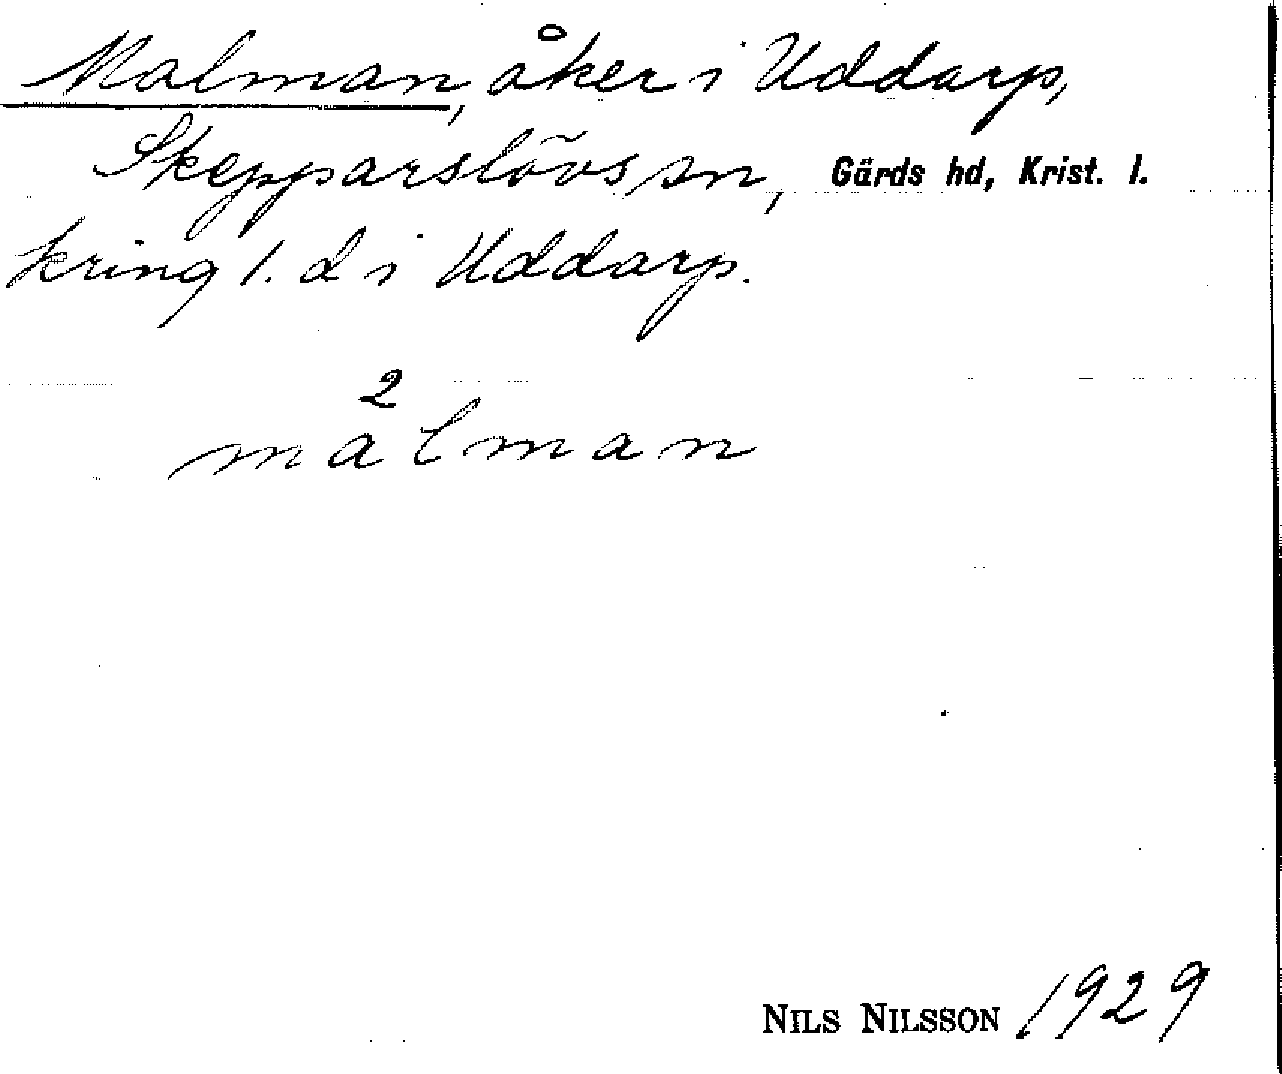 Malman, åker i Uddarp,
Skepparslövs sn, Gärds hd, Krist. l.
kring l. d i Uddarp.
2
malman
NILS NILSSON 1929